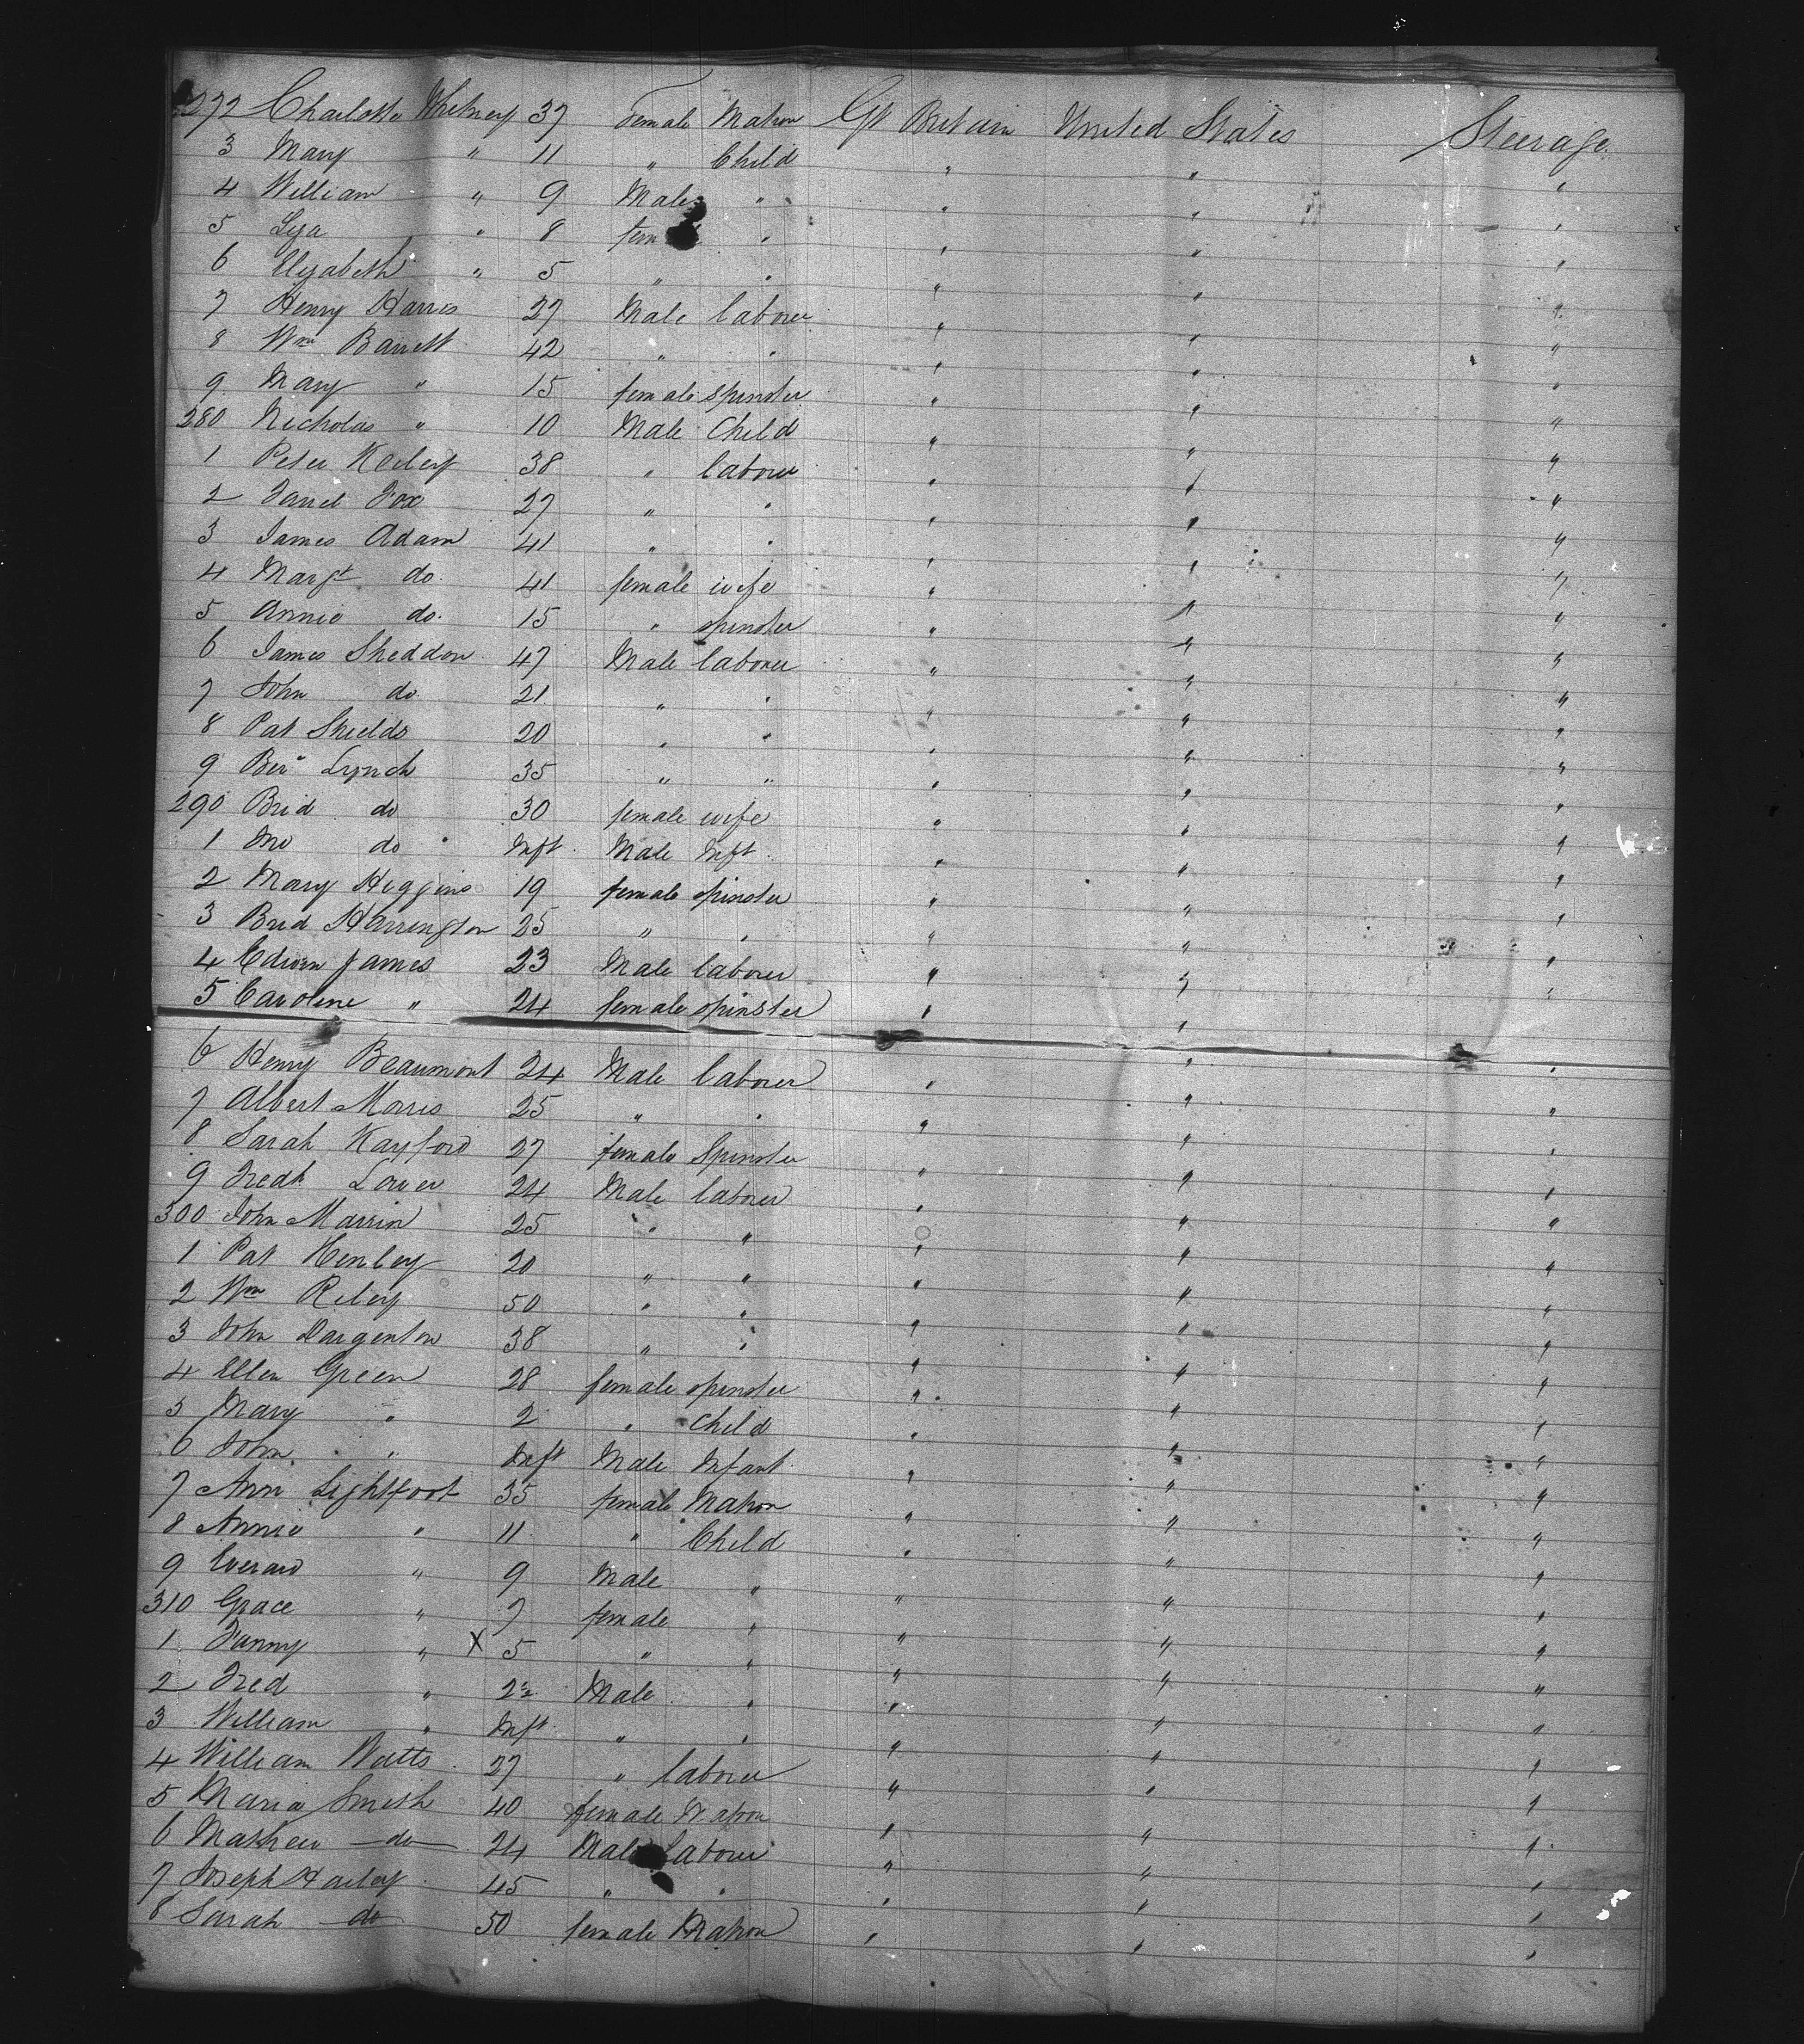 272 Charlotte Whitney 37 Female Matron Gt Britain United States Steerage
3 Mary " 11 " Child " " "
4 William " 9 Male " " " "
5 Liza " 8 female " " " "
6 Elizabeth " 5 " " " " "
7 Henry Harris 27 Male laborer " " "
8 Wm Barrett 42 " " " " "
9 Mary " 15 female spinster " " "
280 Nicholas " 10 Male Child " " "
1 Peter Keiley 38 " laborer " " "
2 Fox 27 " " " " "
3 James Adam 41 " " " " "
4 Margt do. 41 female wife " " "
5 Annie do. 15 " spinster " " "
6 James Sheddon 47 Male laborer " " "
7 John do 21 " " " " "
8 Pat Shields 20 " " " " "
9 Lynch 35 " " " " "
290 Brid do 30 female wife " " "
1 do Inft. Male Inft. " " "
2 Mary Higgins 19 female spinster " " "
3 Brid Harrington 25 " " " " "
4 Edwin James 23 Male laborer " " "
5 Caroline " 24 female spinster " " "
6 Henry Beaumont 24 Male laborer " " "
7 Albert Morris 25 " " " " "
8 Sarah Kayford 27 female Spinster " " "
9 Fredk Lower 24 Male laborer " " "
300 John Marrin 25 " " " " "
1 Pat Henley 20 " " " " "
2 Wm Riley 50 " " " " "
3 John Dargenton 38 " " " " "
4 Ellen Green 28 female spinster " " "
5 Mary " 2 " Child " " "
6 John " Inft Male Infant " " "
7 Ann Lightfoot 35 female Matron " " "
8 Annie " 11 " Child " " "
9 Everard " 9 Male " " " "
310 Grace " 7 female " " " "
1 Fanny " X 5 " " " " "
2 Fred " 2½ Male " " " "
3 William " Inft " " " " "
4 William Watts 27 " laborer " " "
5 Maria Smith 40 female Matron " " "
6 Mathew do 24 Male laborer " " "
7 Joseph Harley 45 " " " " "
8 Sarah do 50 female Matron " " "